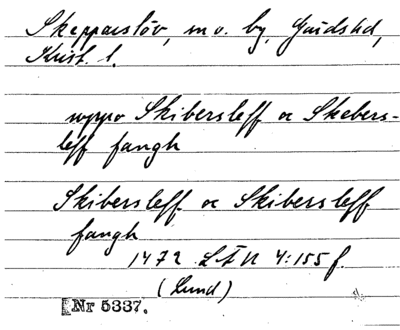 Skepparslöv, sn o. by, Gärds hd,
Krist. l.
uppo Skibersleff oc Skebers-
leff fangh
Skibersleff oc Skibersleff
fangh
1472 LÄU 4:155 f.
(Lund)
Nr 5337.